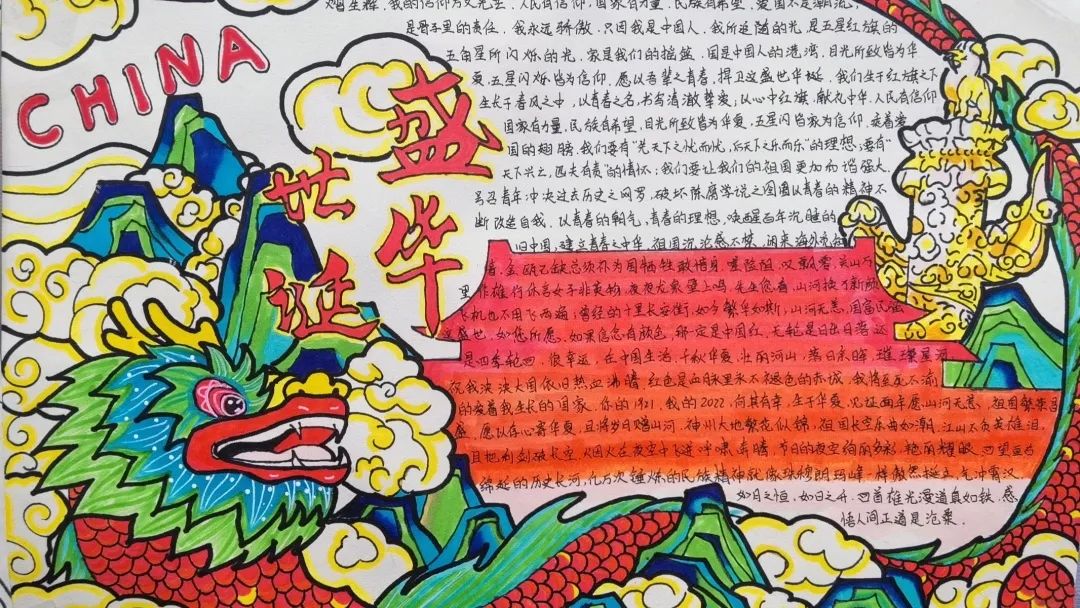 CHINA
盛华
世诞
熠生辉，我的信仰万丈光芒，人民有信仰，国家有力量，民族有希望，爱国不是潮流，
是骨子里的责任，我永远骄傲，只因我是中国人，我所追随的光，是五星红旗的
五角星所闪烁的光，家是我们的摇篮，国是中国人的港湾，目光所致皆为华
夏，五星闪烁皆为信仰，愿以吾辈之青春，捍卫这盛世华诞，我们生于红旗之下
生长于春风之中，以青春之名，书写清澈挚爱；以心中红旗，献礼中华，人民有信仰
国家有力量，民族有希望，目光所致皆为华夏，五星闪皆家为信仰，接着爱
国的翅膀，我们要有"先天下之忧而忧，后天下之乐而乐"的理想，要有"
天下兴亡，匹夫有责"的情怀；我们要让我们的祖国更加和谐强大
号召青年冲决过去历史之网罗，破坏陈腐学说之囹圄以青春的精神不
断改造自我，以青春的朝气，青春的理想，唤醒百年沉睡的
旧中国，建立青春之中华，祖国沉沦感不禁，闲来海外觅知
音，金瓯已缺总须补为国牺牲敢惜身，嗟险阻，叹飘零，关山万
里作雄行休言女子非英物，夜夜龙泉壁上鸣，先生您看，山河换了新颜
飞机也不用飞两遍，曾经的十里长安街，如今繁华如斯，山河无恙，国富民强
这盛世，如您所愿，如果信念有颜色，那一定是中国红，无轮是日出日落还
是四季轮回，很幸运，在中国生活，千秋华夏，壮丽河山，落日余晖，璀璨星河
在我泱泱大国依旧热血沸腾，红色是血脉里永不褪色的赤诚，我将至死不渝
的爱着我生长的国家，你的1921，我的2022，何其有幸，生于华夏，见证百年愿山河无恙，祖国繁荣昌
盛，愿以存心寄华夏，且将岁月赠山河，神州大地繁花似锦，祖国长空乐曲如潮，江山不负英雄泪，
且把利剑破长空，烟火在夜空中飞速呼啸奔腾，节日的夜空绚丽多彩，艳丽耀眼，回望亘古
绵延的历史长河，亿万次锤炼的民族精神就像珠穆朗玛峰一样傲然挺立，气冲霄汉
如月之恒，如日之升，回首雄光漫道真如铁，感
悟人间正道是沧桑．